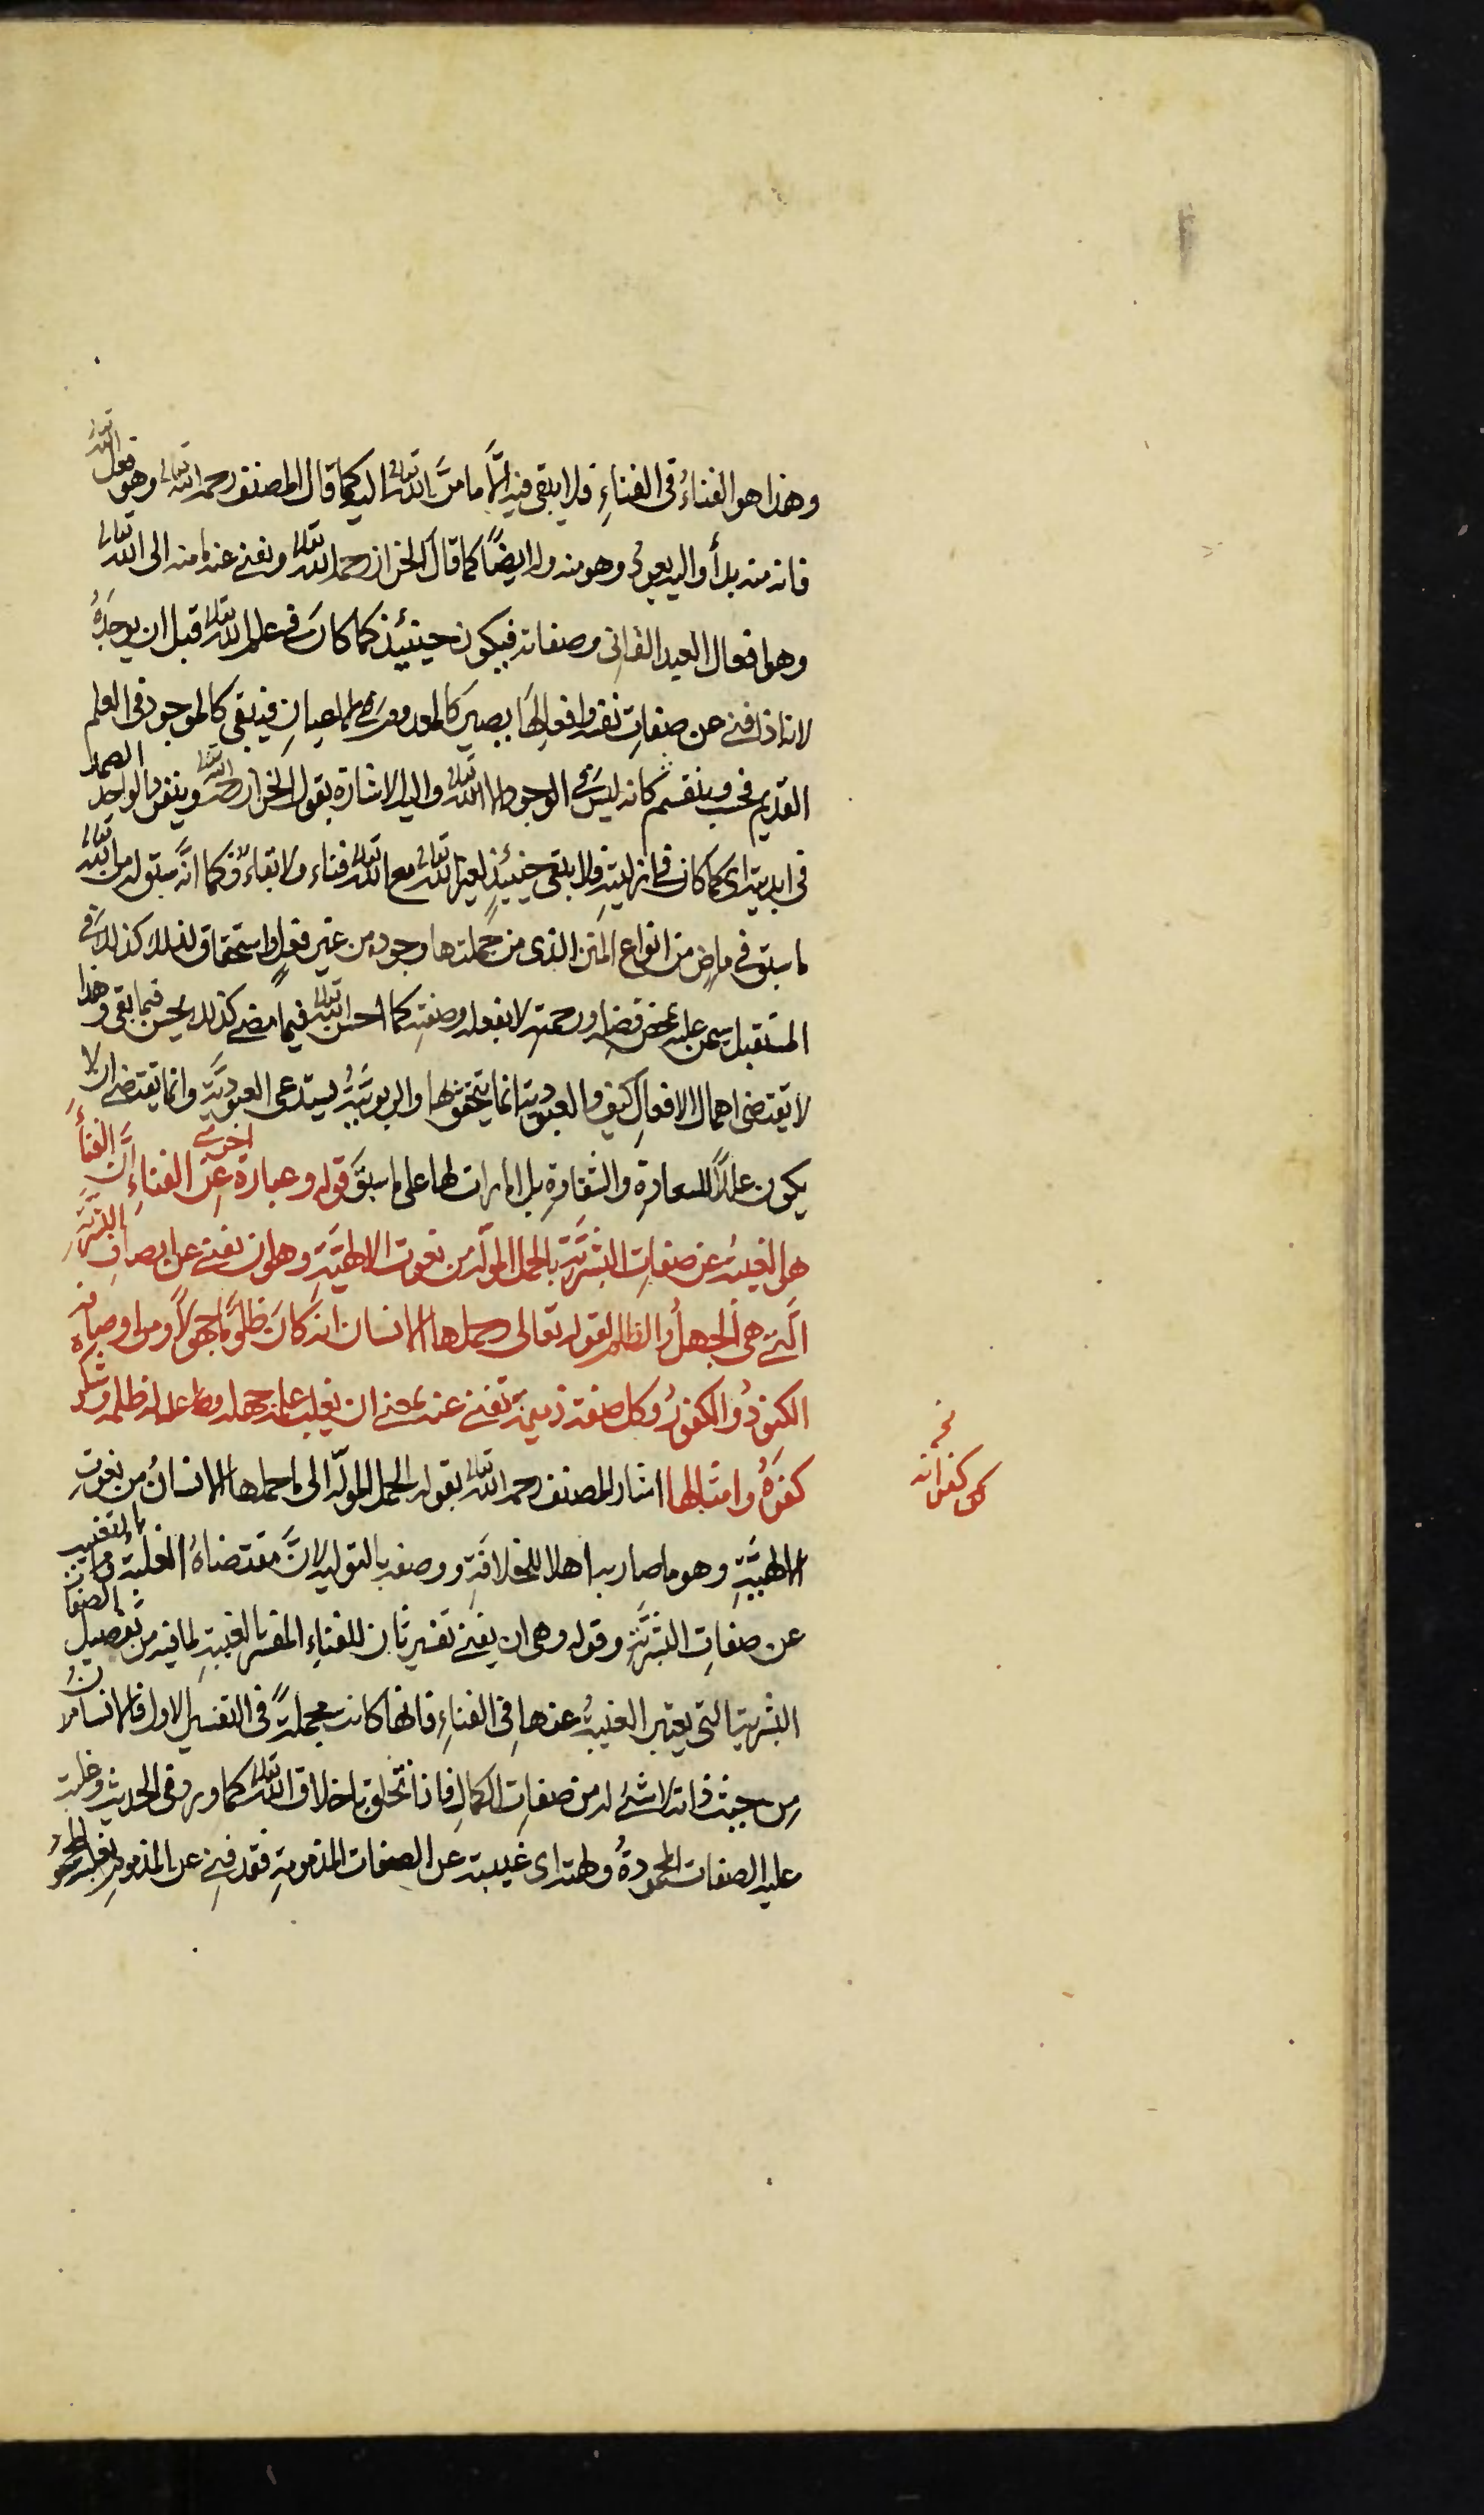 وهذا هو الفناءُ فى الفناءِ فلا يبقى فيه الَّا ما منَ الله تعالى اليه كما قال المصنف رحمه الله تعالى وهو فعل الله تعالى
فانه منه بدأ واليه يعودُ وهو منه وله ايضًا كما قال الخراز رحمه الله تعالى ونفنى عنه ما منه الى الله تعالى
وهو افعال العبد الفانى وصفاته فيكون حينئذ كما كانَ فى علم الله تعالى قبل ان يوجدَهُ
لانه اذا فنى عن صفاتِ نفسه وافعالِهَا يصير كالمعدوم فى الاعيانِ فيبقى كالموجود فى العلم
القديم فحسب كانه ليس فى الوجود الا الله تعالى واليه الاشارة بقول الخراز رحمه الله وينفرد الواحد الصمد
فى ابديته اى كما كان فى ازليتهِ فلا يبقى حينئذٍ لغير الله تعالى مع الله تعالى فناء ولا بقاءٌ فكما انَّه سبق له من الله تعالى
ما سبق فى ماضٍ من انواع المنن الذى من جُملتها وجوده من غير فعلٍ واستحقاق لذلك كذلك فى
المستقبل يمن عليه بمحض فضله ورحمته لا بفعله وصفتهِ كما احسن الله تعالى فيما مضى كذلك يحسن فيما بقى وهذا
لا يقتضى اهمال الافعالِ كيف والعبودية انما يتحقق بها والربوبيَّةُ يستدعى العبوديَّة وانما يقتضى ان لا
يكون عللًا للسعادةِ والشقاوةِ بل امارات لها على ما سبقَ قوله وعبارة اخرى عَن الفناءِ انَّ الفناءَ
هى الغيبةُ عن صفاتِ البشريَّةِ بالحمل المولّه من نعوت الالهيَّةِ وهو ان تفنى عن اوصافِ البشريَّةِ
الَّتى هى الجهلُ والظلم لقوله تعالى حملها الانسان انه كانَ ظلومًا جهولًا ومن اوصافه
الكنودُ والكفورُ وكل صفة ذميمة تفنى عنه بمعنى ان يغلب علمه جهله وعدله ظلمه وشكره
كفرَهُ وامثالها اشار المصنف رحمه الله تعالى بقوله الحمل المولّه الى ما حملها الانسانُ من نعوتِ
الالهيَّةِ وهو ما صار به اهلا للخلافَةِ ووصفه بالتوليه لانَّ مقتضاهُ الغلبة بالتغييب
عن صفاتِ البشريَّةِ وقوله وهى ان يفنى تفسير ثانٍ للفناءِ المفسر بالغيبةِ لما فيه من تفصيل الصفات
البشرية التى يعتبر الغيبةُ عنها فى الفناءِ فانها كانت مجملةً فى التفسير الاول فالانسانُ
من حيث ذاته لا شئ له من صفاتِ الكمالِ فاذا تخلق باخلاق الله تعالى كما ورد فى الحديث وغلبت
عليه الصفات المحمودةُ ولهته اى غيبته عن الصفات المذمومةِ فقد فنى عن المذمومِ بغلبة المحمودِ
نخ
كفرانه